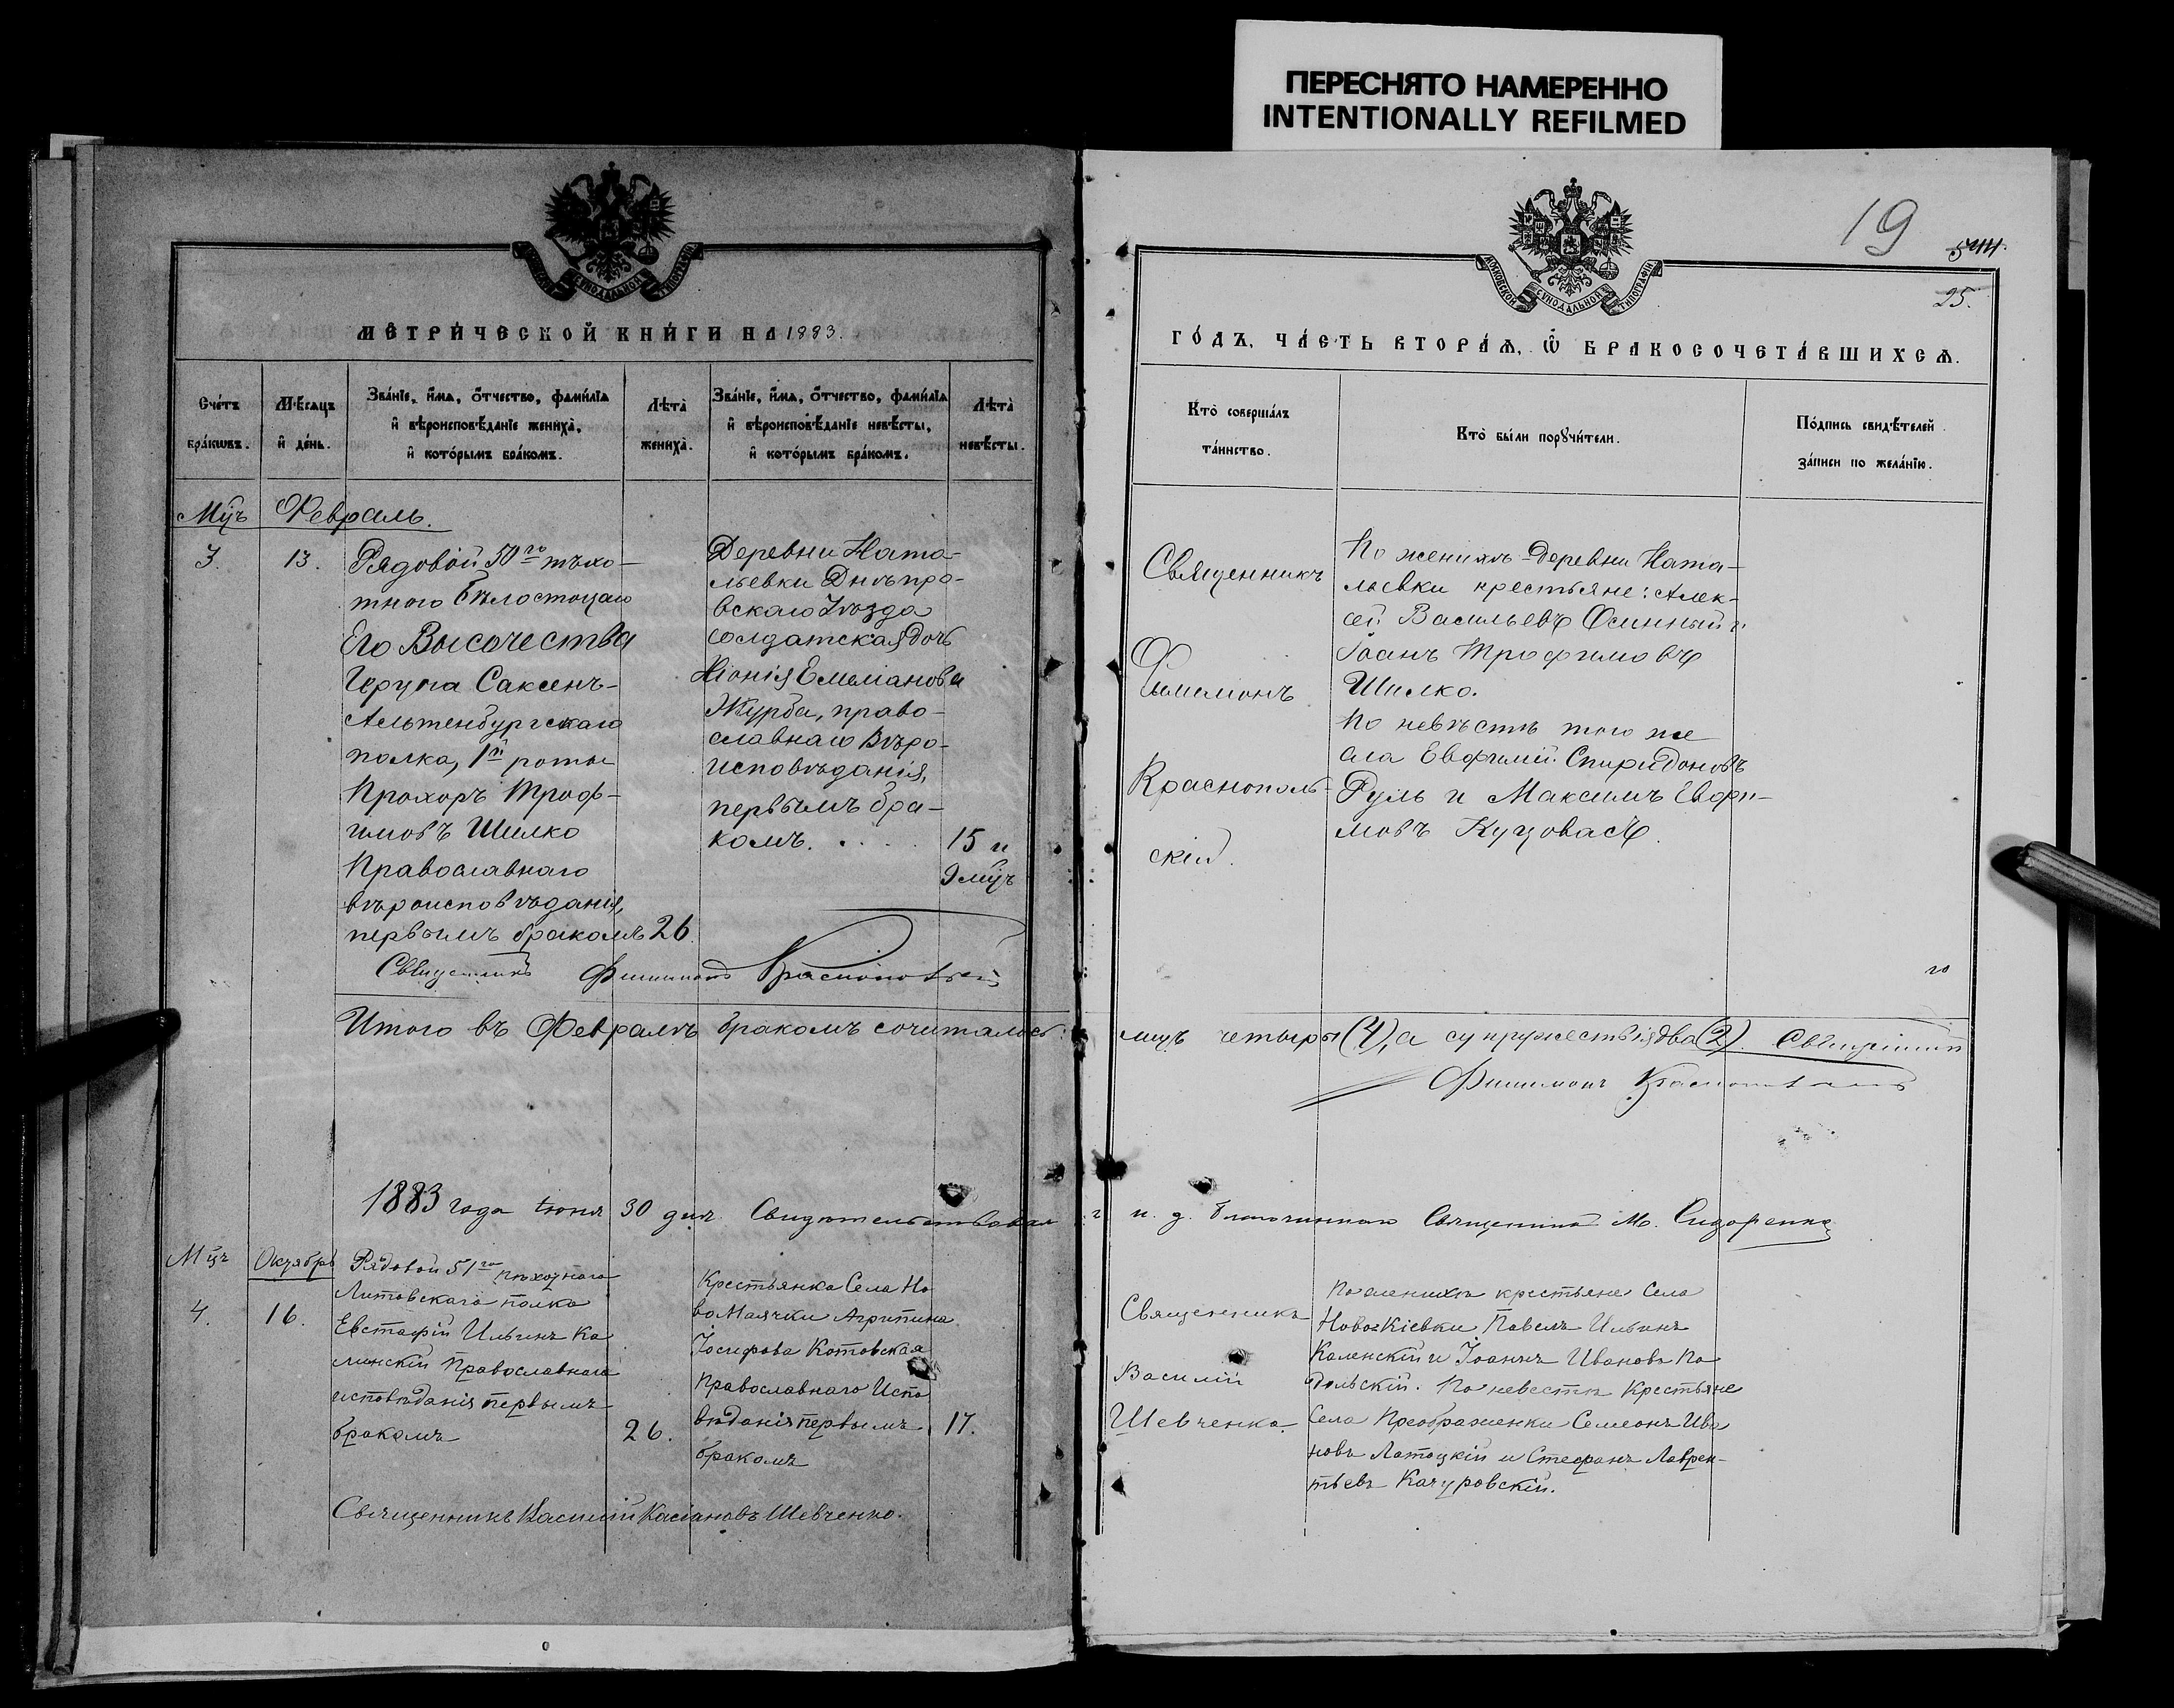 ПЕРЕСНЯТО НАМЕРЕННО
INTENTIONALLY REFILMED
СѴНОДАЛЬНОЙ ТИПОГРАФІИ
МЕТРИ́ЧЕСКОЙ КНИ́ГИ НА 1883.
Сче́тъ
бра́кωвъ.
Мѣ́сяцъ
и҆ де́нь.
Зва́нїе, и҆́мѧ, ѻ҆́тчество, фами́лїѧ
и҆ вѣроисповѣ́данїе жениха̀,
и҆ кото́рымъ бра́комъ.
Лѣта̀
жениха̀.
Зва́нїе, и҆́мѧ, ѻ҆́тчество, фами́лїѧ
и҆ вѣроисповѣ́данїе невѣ́сты,
и҆ кото́рымъ бра́комъ.
Лѣта̀
невѣ́сты.
Мцъ Февраль.
3.
13.
Рядовой 50го пѣхо-
тнаго Бѣлостоцкаго
Его Высочества
Герцога Саксенъ-
Альтенбургскаго
полка, 1й роты
Прохоръ Троф-
имовъ Шилко
Православнаго
вѣроисповѣданія,
первымъ бракомъ
26.
Деревни Ната-
льевки Днѣпро-
вскаго Уѣзда
солдатская дочь
Хіонія Емеліанова
Журба, право-
славнаго Вѣро-
исповѣданія,
первымъ бра-
комъ. . . . .
15 и
9 мцъ
Священникъ Филимонъ Краснопольскій
Итого въ Февралѣ бракомъ сочиталось:
1883 года Іюня 30 дня Свидѣтельствовал
Мцъ Октябрь
4.
16.
Рядовой 51го пѣхотнаго
Литовскаго полка
Евстафій Ильинъ Ка
линскій Православнаго
исповѣданія первымъ
бракомъ
26.
Крестьянка Села Но
во Маячки Агрипина
Іосифова Котовская
Православнаго Испо
вѣданія первымъ
бракомъ
17.
Священникъ Василій Касіановъ Шевченко.
19
544.
25.
МОСКОВСКОЙ СѴНОДАЛЬНОЙ ТИПОГРАФІИ
ГО́ДЪ, ЧА́СТЬ ВТОРА́Ѧ, Ѽ БРАКОСОЧЕТА́ВШИХСѦ.
Кто̀ соверша́лъ
та́инство.
Кто̀ бы́ли порꙋчи́тели.
По́дпись свидѣ́телей
за́писи по жела́нїю.
Священникъ
Филимонъ
Краснополь-
скій.
По женихѣ - Деревни Ната-
льевки крестьяне: Алек-
сей Васильевъ Осинный и
Іоанъ Трофимовъ
Шилко.
По невѣстѣ того же
села Евфимій Спиридоновъ
Руль и Максимъ Евфи-
мовъ
го
лицъ четыри (4), а супружествія два (2). Священникъ
Филимонъ Краснопольскій
и. д. благочиннаго Священникъ М. Сидоренко
Священникъ
Василій
Шевченко.
По женихѣ крестьяне Села
Ново-Кіевки Павелъ Ильинъ
Каленскій и Іоаннъ Ивановъ По
дольскій. По невестѣ Крестьяне
Села Преображенки Семеонъ Ива
новъ Латоцкій и Стефанъ Лаврен-
тьевъ Качуровскій.